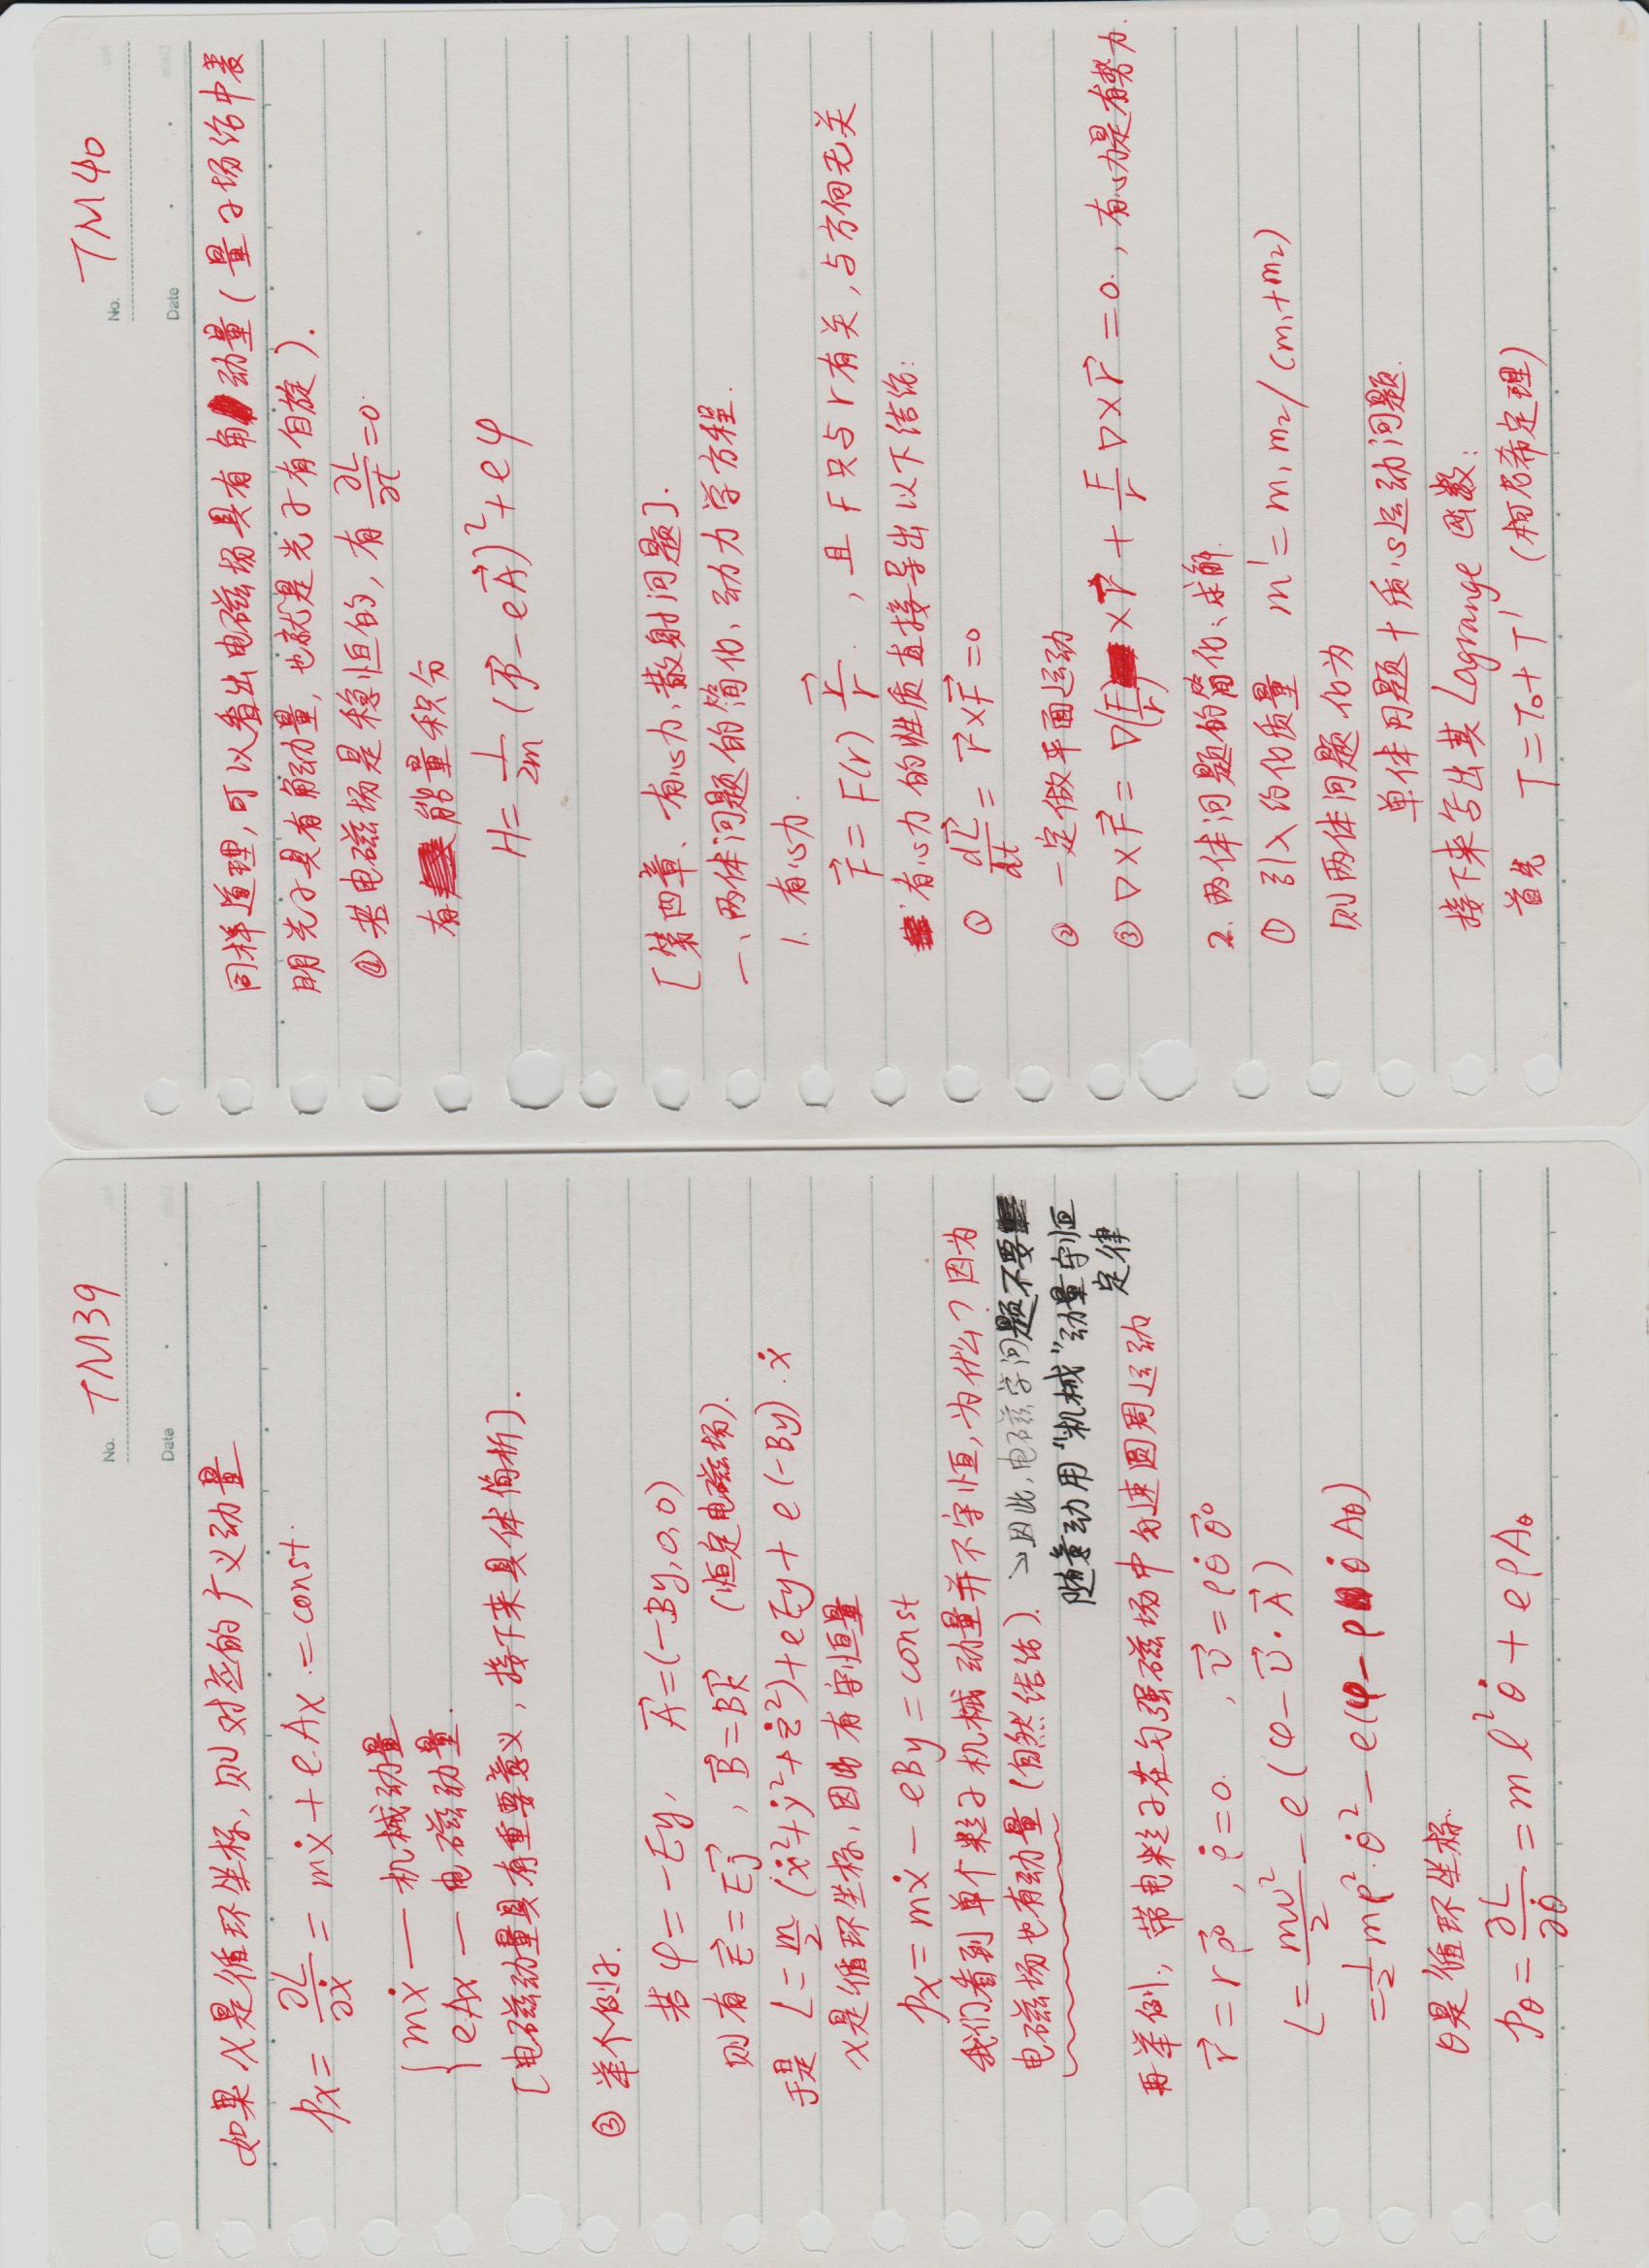 No. TM39
Date
如果x是循环坐标,则对应的广义动量
p_x = ∂L/∂ẋ = mẋ + eA_x = const.
{ mẋ — 机械动量
eA_x — 电磁动量.
[电磁动量具有重要意义,接下来具体简析].
③ 举个例子.
若 φ = -Ey, A⃗ = (-By, 0, 0)
则有 E⃗ = Ej⃗, B⃗ = Bk⃗ (恒定电磁场).
于是 L = m/2 (ẋ² + ẏ² + ż²) + eEy + e(-By)·ẋ
x是循环坐标,因此有守恒量
p_x = mẋ - eBy = const
我们看到单个粒子机械动量并不守恒,为什么?因为
电磁场也有动量(自然结论). ↘因此,电磁学问题不要
随意动用“机械”动量守恒
定律
再举例,带电粒子在匀强磁场中匀速圆周运动
r⃗ = rρ⃗⁰, ρ̇ = 0. , v⃗ = ρθ̇θ⃗⁰
L = mv²/2 - e(φ - v⃗·A⃗)
= 1/2 mρ²·θ̇² - e(φ - ρθ̇A_θ)
θ是循环坐标.
p_θ = ∂L/∂θ̇ = mρ²θ̇ + eρA_θ
No. TM40
Date
同样道理,可以看出电磁场具有角动量(量子场论中表
明光子具有角动量,也就是光子有自旋).
④ 若电磁场是稳恒的,有 ∂L/∂t = 0.
有能量积分
H = 1/2m (p⃗ - eA⃗)² + eφ
[第四章、有心力,散射问题].
一、两体问题的简化、动力学方程.
1. 有心力.
F⃗ = F(r) r⃗/r. ,且F只与r有关,与方向无关
有心力的性质直接导出以下结论:
① dL⃗/dt = r⃗×F⃗ = 0
② 一定做平面运动
③ ∇×F⃗ = ∇(F/r)×r⃗ + F/r ∇×r⃗ = 0. ,有心力是有势力.
2. 两体问题的简化、求解.
① 引入约化质量 m' = m₁m₂/(m₁+m₂)
则两体问题化为
单体问题 + 质心运动问题.
接下来写出其Lagrange函数:
首先 T = T₀ + T' (柯尼希定理)